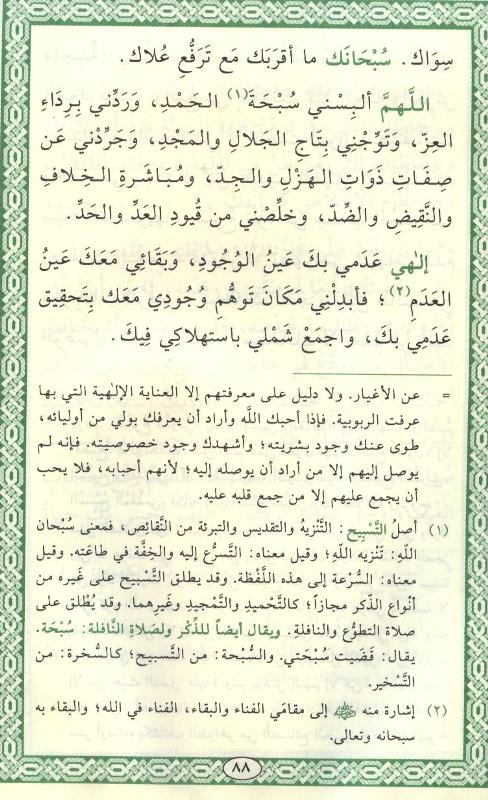 سِوَاك. سُبْحَانَك ما أقرَبَك مَع تَرَفُّعِ عُلاك.
اللَّهمَّ ألبِسْني سُبْحَةَ(١) الحَمْدِ، وَرَدِّني بِرِدَاءِ
العِزّ، وَتَوِّجْنِي بِتَاجِ الجَلالِ والمَجْدِ، وَجَرِّدْني عَن
صِفَاتِ ذَوَاتِ الهَزْلِ والجِدّ، ومُبَاشَرةِ الخِلافِ
والنَّقِيضِ والضِّدّ، وخلِّصْني من قُيودِ العَدِّ والحَدِّ.
إلهي عَدَمي بكَ عَينُ الوُجُودِ، وَبَقَائي مَعَكَ عَينُ
العَدَمِ(٢)؛ فأبدِلْنِي مَكَانَ تَوهُّمِ وُجُودِي مَعَكَ بِتَحقِيق
عَدَمِي بكَ، واجمَعْ شَمْلي باستهلاكِي فِيكَ.
= عن الأغيار. ولا دليل على معرفتهم إلا العناية الإلهية التي بها
عرفت الربوبية. فإذا أحبك اللَّه وأراد أن يعرفك بولي من أوليائه،
طوى عنك وجود بشريته؛ وأشهدك وجود خصوصيته. فإنه لم
يوصل إليهم إلا من أراد أن يوصله إليه؛ لأنهم أحبابه، فلا يحب
أن يجمع عليهم إلا من جمع قلبه عليه.
(١) أصلُ التَّسْبِيح: التَّنْزِيهُ والتقديس والتبرئة من النَّقائِص، فمعنى سُبْحان
اللَّهِ: تَنْزيه اللَّهِ؛ وقيل معناه: التَّسرُّع إليه والخِفَّة في طاعَتِه. وقيل
معناه: السُّرْعة إلى هذه اللَّفْظة. وقد يطلق التَّسْبيح على غَيره من
أنْواع الذّكر مجازاً؛ كالتَّحْميدِ والتَّمْجيدِ وغَيرِهما. وقد يُطْلق على
صلاة التطوُّع والنافلةِ. ويقال أيضاً للذِّكْر ولصَلاةِ النَّافلة: سُبْحَة.
يقال: قَضَيت سُبْحَتي. والسُّبْحة: من التَّسبيح؛ كالسُّخْرة: من
التَّسْخير.
(٢) إشارة منه ﷺ إلى مقامَي الفناء والبقاء، الفناء في الله؛ والبقاء به
سبحانه وتعالى.
٨٨